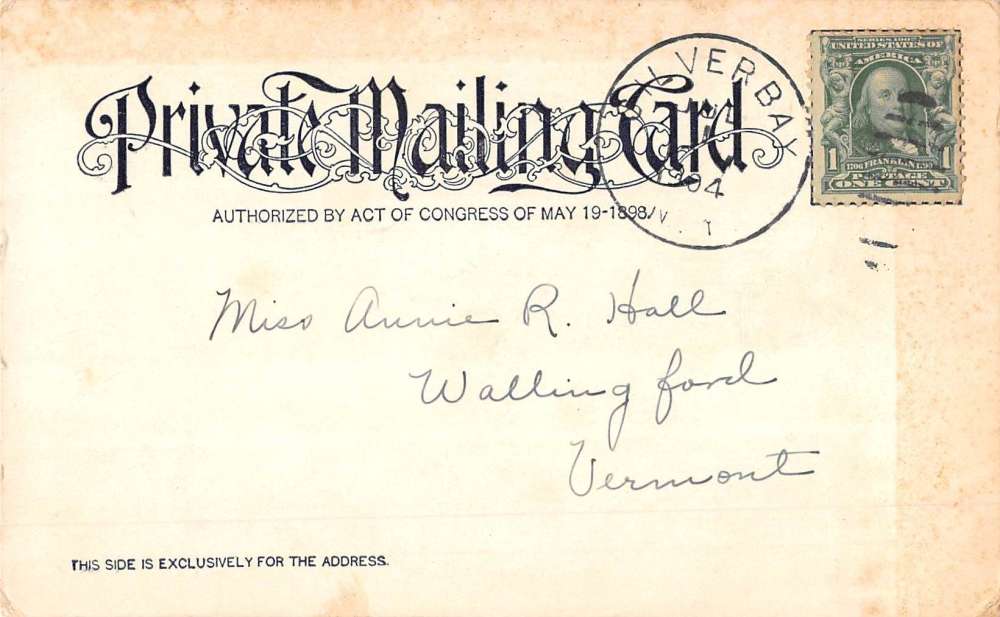 Private Mailing Card
AUTHORIZED BY ACT OF CONGRESS OF MAY 19-1898.
VERBAY
1904
SERIES 1902
UNITED STATES OF
AMERICA
1706 FRANKLIN 90
1 POSTAGE 1
ONE CENT
Miss Annie R. Hall
Wallingford
Vermont
THIS SIDE IS EXCLUSIVELY FOR THE ADDRESS.